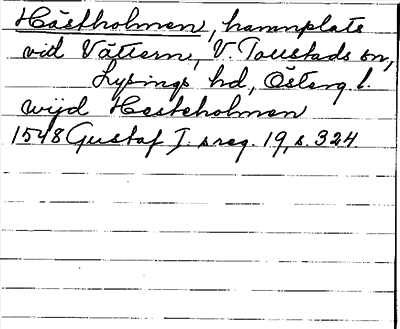 Hästholmen, hamnplats
vid Vättern, V. Tollstads sn,
Lysings hd, Österg. l.
wijd Hesteholmen
1548 Gustaf I. s reg. 19, s. 324